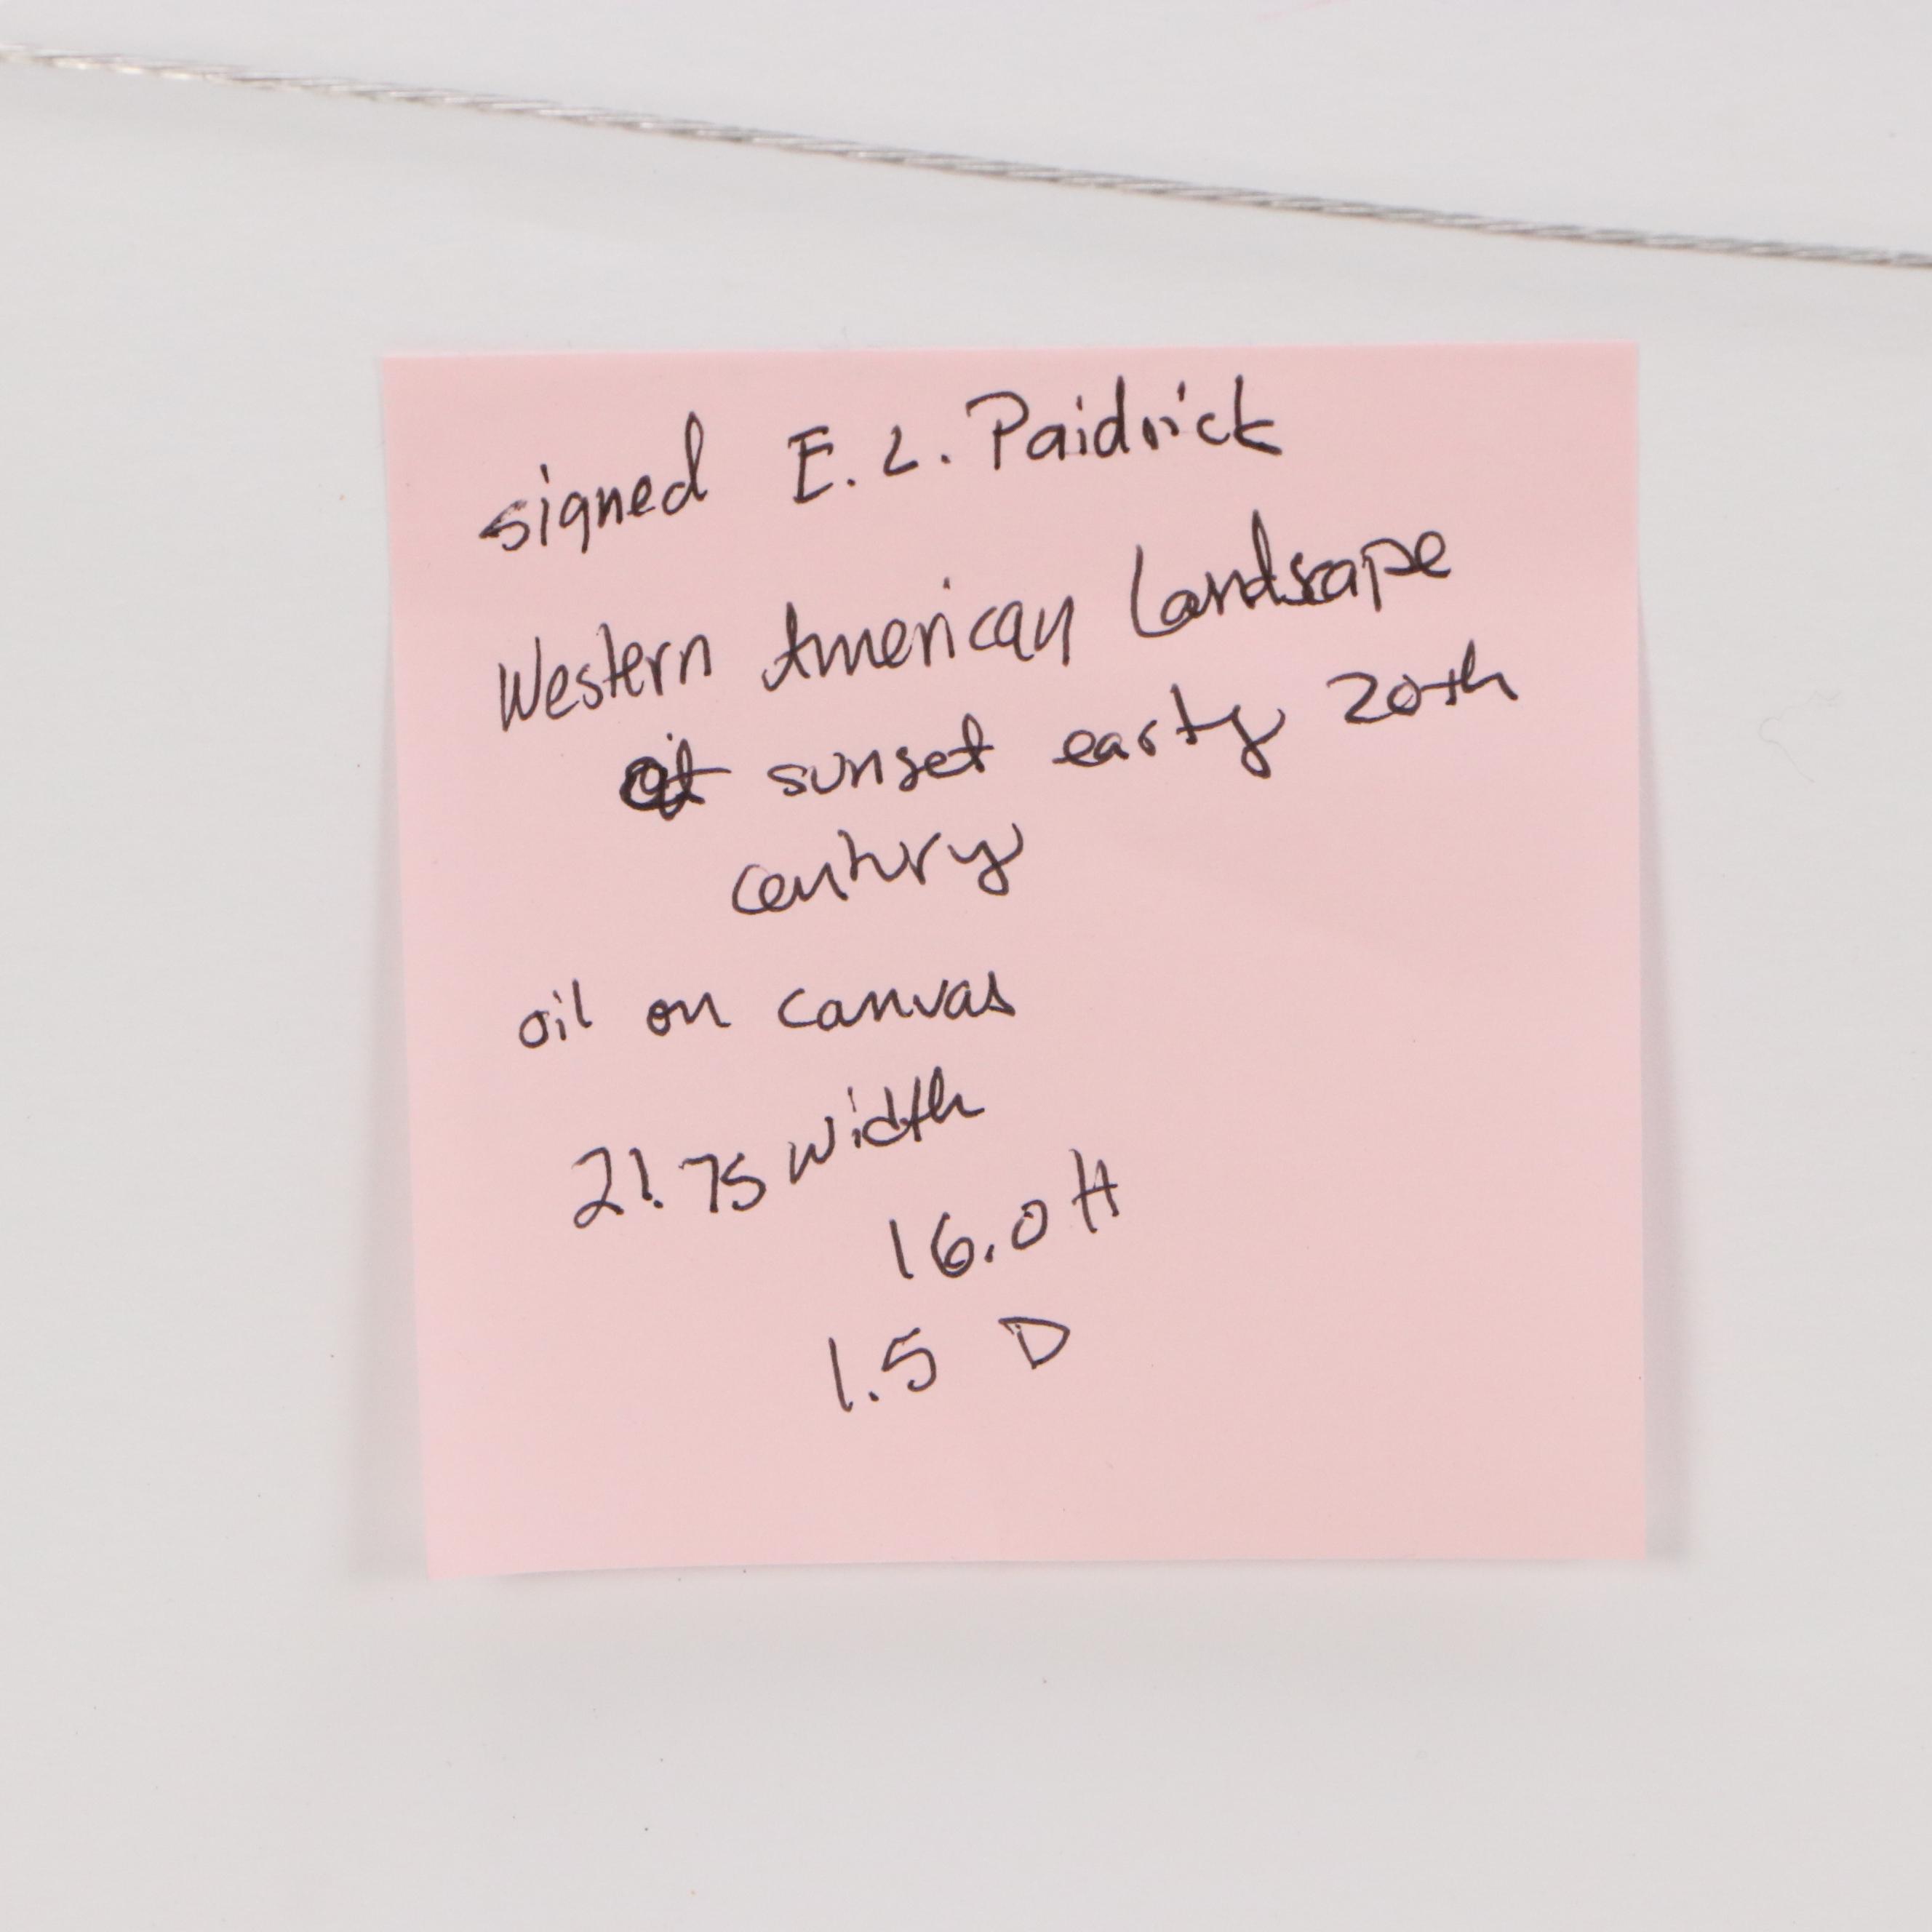 signed E.L. Paidrick
Western American Landscape
at sunset early 20th
century
oil on canvas
21.75 width
16.0 H
1.5 D